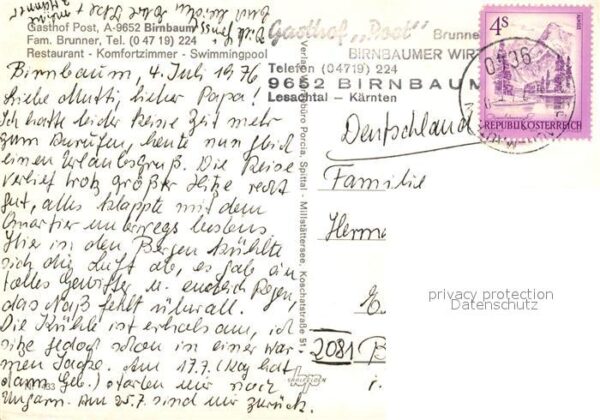 Gasthof Post, A-9652 Birnbaum
Fam. Brunner, Tel. (0 47 19) 224
Restaurant - Komfortzimmer - Swimmingpool
Gasthof „Post"
Brunner
BIRNBAUMER WIRT
Telefon (04719) 224
9652 BIRNBAUM
Lesachtal – Kärnten
4 S
REPUBLIK ÖSTERREICH
Birnbaum, 4. Juli 1976
Liebe Mutti, lieber Papa!
Ich hatte leider keine Zeit mehr
zum Anrufen, heute nun gleich
einen Urlaubsgruß. Die Reise
verlief trotz größter Hitze recht
gut, alles klappte mit dem
Quartier unterwegs bestens.
Hier in den Bergen kühlte
sich die Luft ab, es gab ein
tolles Gewitter u. endlich Regen,
das Naß fehlt überall.
Die Kühle ist erholsam, ich
sitze jedoch schon in einer war-
men Jacke. Am 17.7. (Kay hat
dann Geb.) starten wir nach
Ungarn. Am 25.7. sind wir zurück.
Verlag
büro Porcia, Spittal - Millstättersee, Koschatstraße 51
Deutschland
Familie
Herma
2081 B
privacy protection
Datenschutz